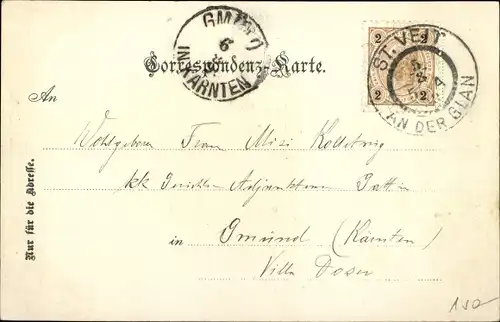 GMÜND
6
IN KÄRNTEN
Correspondenz-Karte.
2 2
2 2
ST. VEIT
AN DER GLAN
An
Wohlgeboren Frau Mizi
kk Gerichts Adjunktens Gattin
in Gmünd (Kärnten)
Villa Doser
Nur für die Adresse.
150